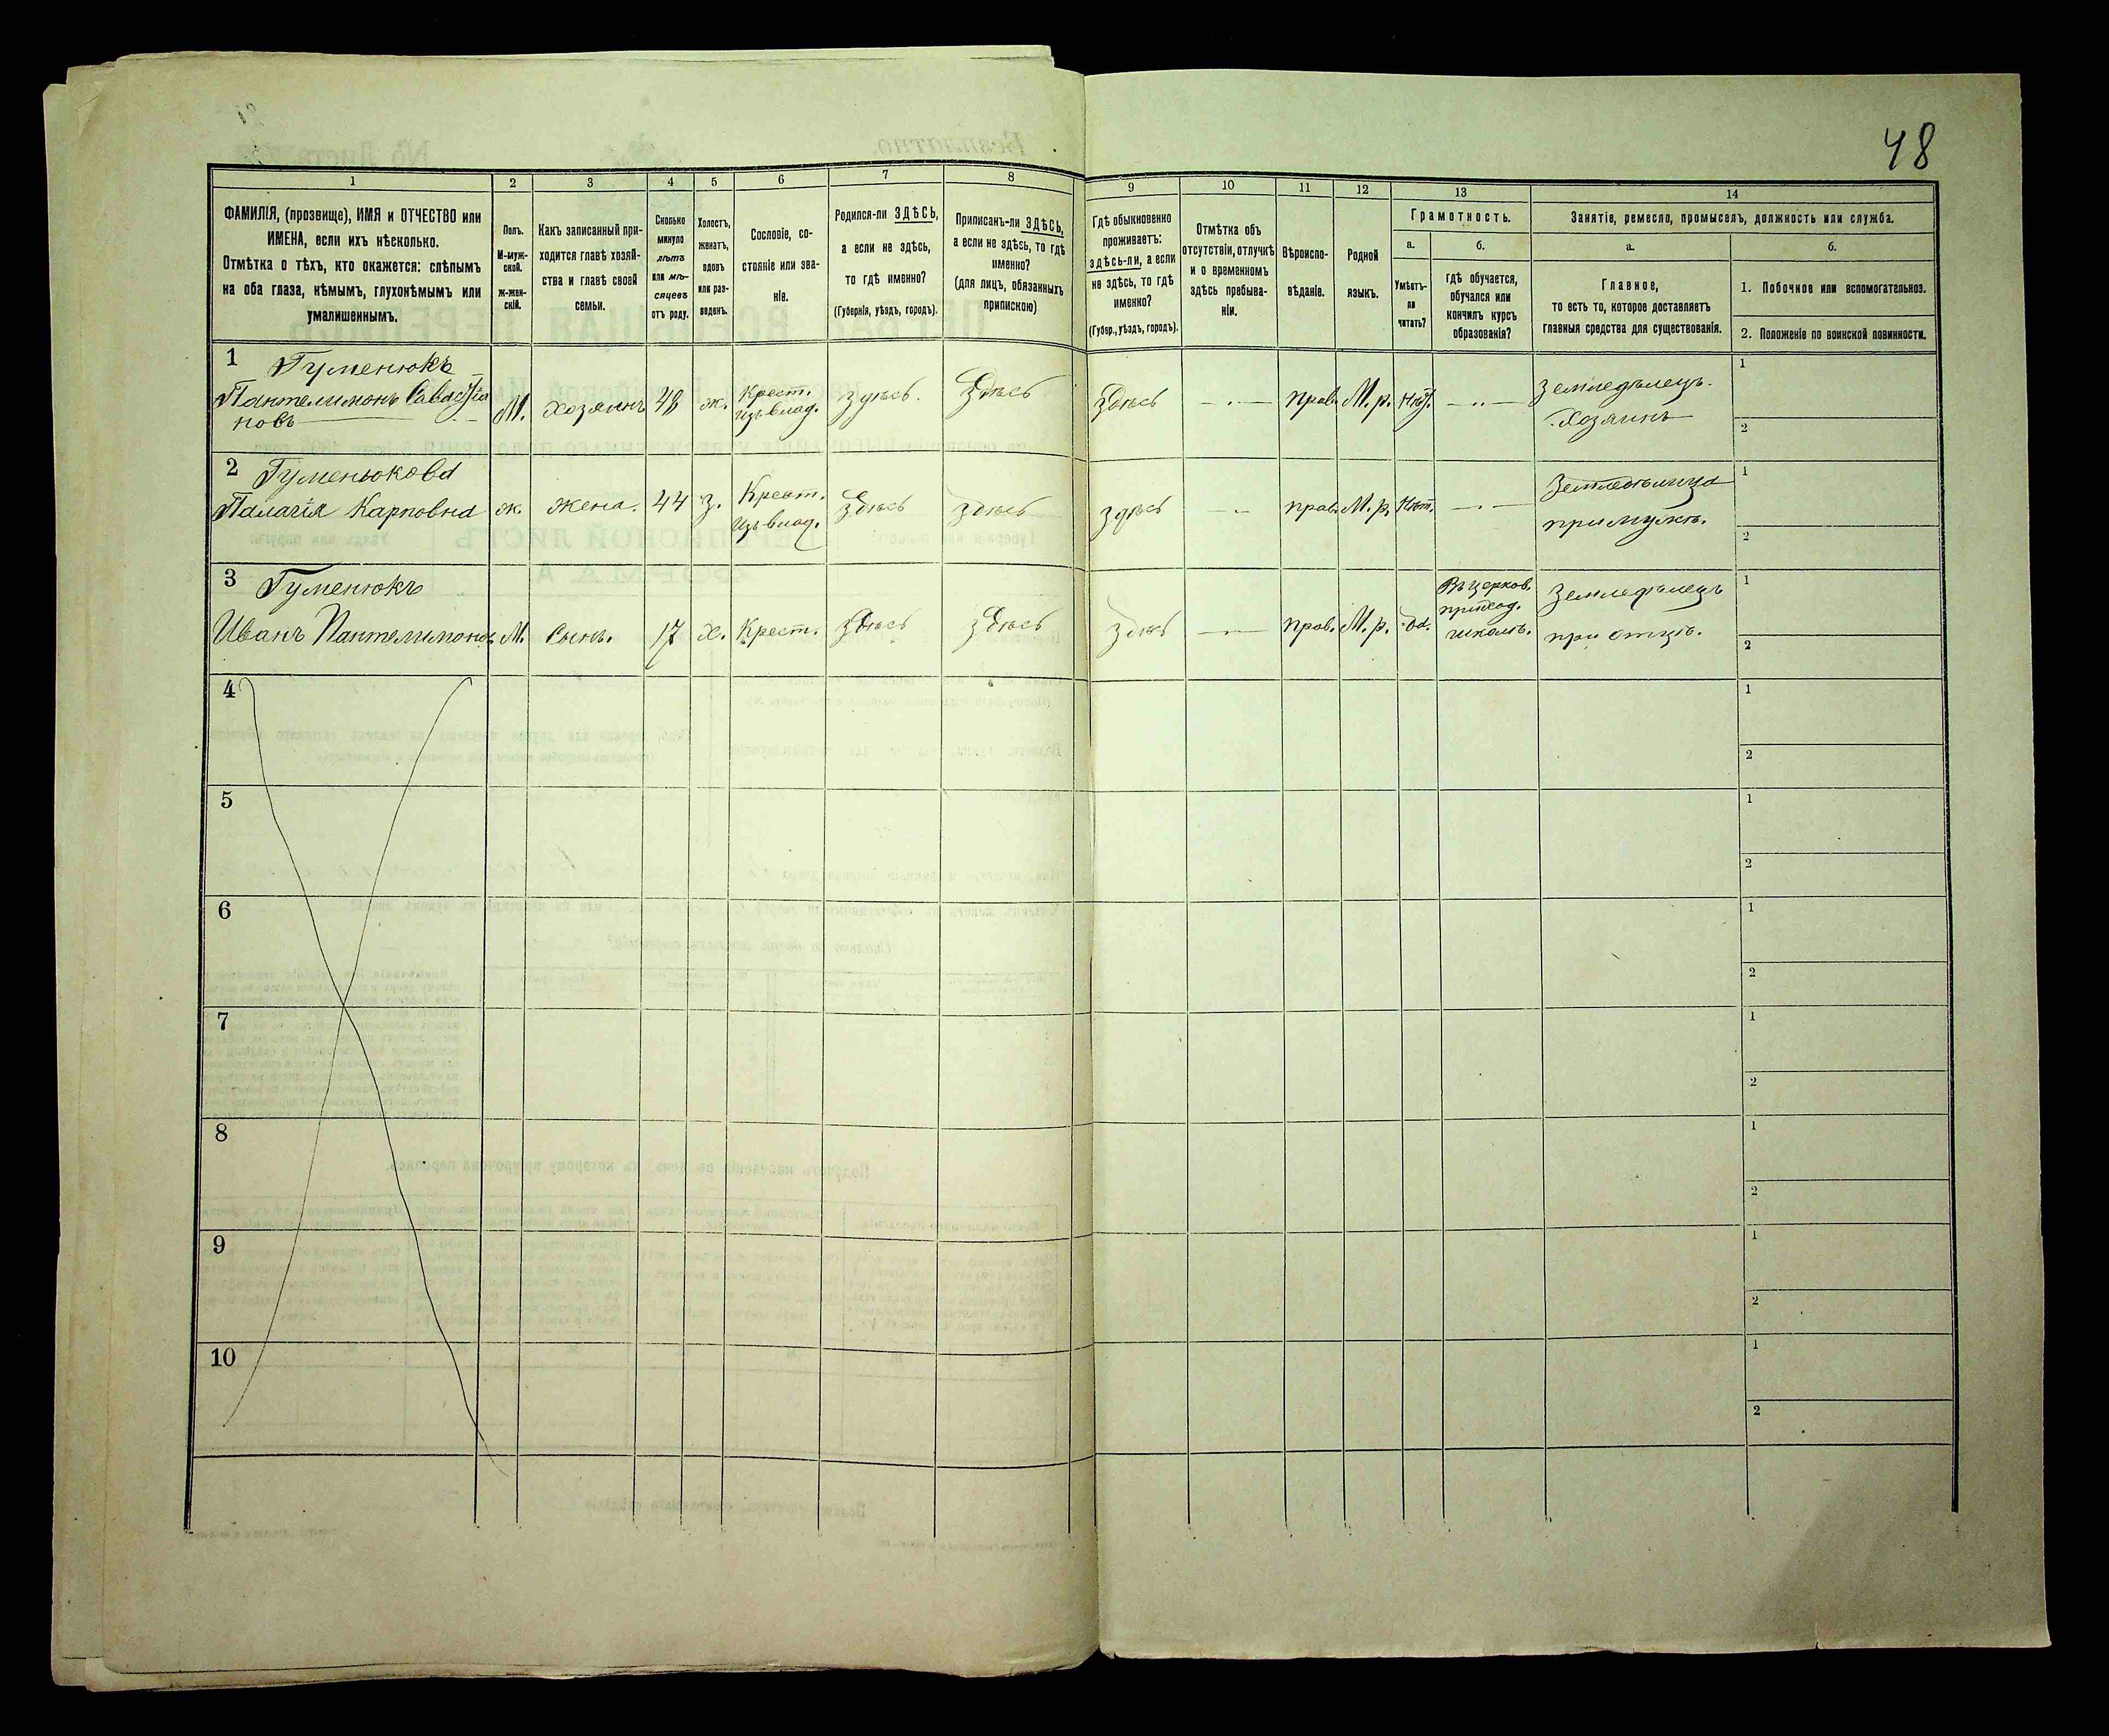 48
1
2
3
4
5
6
7
8
9
10
11
12
13
14
ФАМИЛІЯ, (прозвище), ИМЯ и ОТЧЕСТВО или
ИМЕНА, если ихъ нѣсколько.
Отмѣтка о тѣхъ, кто окажется: слѣпымъ
на оба глаза, нѣмымъ, глухонѣмымъ или
умалишеннымъ.
Полъ.
М-муж-
ской.
ж-жен-
скій.
Какъ записанный при-
ходится главѣ хозяй-
ства и главѣ своей
семьи.
Сколько
минуло
лѣтъ
или мѣ-
сяцевъ
отъ роду.
Холостъ,
женатъ,
вдовъ
или раз-
веденъ.
Сословіе, со-
стояніе или зва-
ніе.
Родился-ли ЗДѢСЬ,
а если не здѣсь,
то гдѣ именно?
(Губернія, уѣздъ, городъ).
Приписанъ-ли ЗДѢСЬ,
а если не здѣсь, то гдѣ
именно?
(для лицъ, обязанныхъ
припискою)
Гдѣ обыкновенно
проживаетъ:
здѣсь-ли, а если
не здѣсь, то гдѣ
именно?
(Губер., уѣздъ, городъ).
Отмѣтка объ
отсутствіи, отлучкѣ
и о временномъ
здѣсь пребыва-
ніи.
Вѣроиспо-
вѣданіе.
Родной
языкъ.
Грамотность.
а.
б.
Умѣетъ-
ли
читать?
гдѣ обучается,
обучался или
кончилъ курсъ
образованія?
Занятіе, ремесло, промыселъ, должность или служба.
а.
б.
Главное,
то есть то, которое доставляетъ
главныя средства для существованія.
1. Побочное или вспомогательное.
2. Положеніе по воинской повинности.
1 Гуменюкъ
Пантелимонъ
новъ
М.
хозяинъ
48
ж.
Крест.
изъ влад.
Здѣсь.
Здѣсь
Здѣсь
прав.
М. р.
Нѣт.
Земледѣлецъ.
Хозяинъ
1
2
2 Гуменюкова
Палагія Карповна
ж
жена.
44
з.
Крест.
изъ влад.
Здѣсь
Здѣсь
здѣсь
прав.
М. р.
Нѣт.
Земледѣлица
при мужѣ.
1
2
3 Гуменюкъ
Иванъ Пантелимоновъ
М.
Сынъ.
17
х.
Крест.
здѣсь
здѣсь
здѣсь
прав.
М. р.
Да.
Въ церков.
приход.
школѣ.
Земледѣлецъ
при отцѣ.
1
2
4
1
2
5
1
2
6
1
2
7
1
2
8
1
2
9
1
2
10
1
2